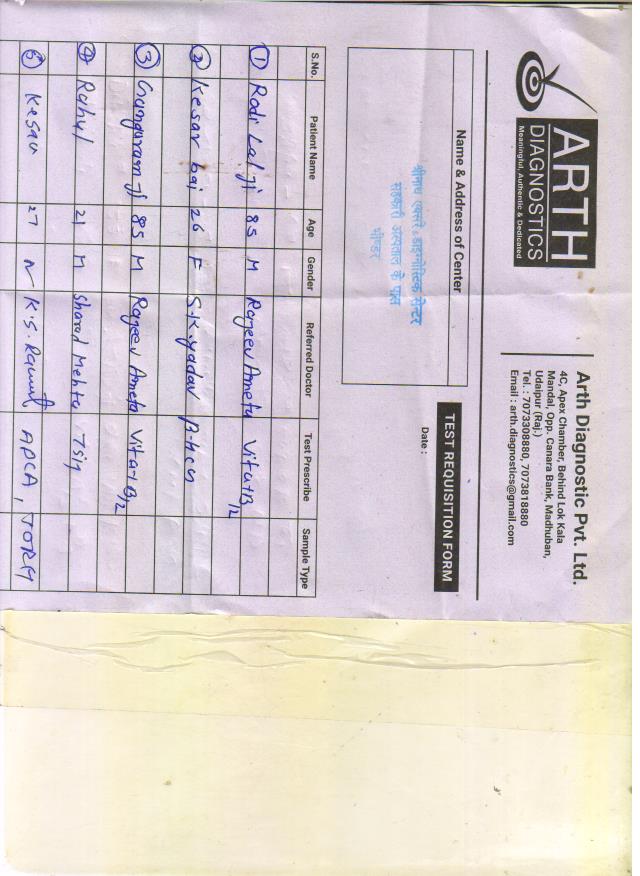 ARTH
DIAGNOSTICS
Meaningful, Authentic & Dedicated
Arth Diagnostic Pvt. Ltd.
4C, Apex Chamber, Behind Lok Kala
Mandal, Opp. Canara Bank, Madhuban,
Udaipur (Raj.)
Tel. : 7073308880, 7073818880
Email : arth.diagnostics@gmail.com
Name & Address of Center
श्रीनाथ एक्सरे डाइग्नोस्टिक सेन्टर
सरकारी अस्पताल के पास
भीण्डर
TEST REQUISITION FORM
Date :
S.No. Patient Name Age Gender Referred Doctor Test Prescribe Sample Type
1 Rodi Lal Ji 85 M Rajeev Ameta Vita-B12
2 Kesar bai 26 F S.K. yadav B-hcg
3 Gangaram Ji 85 M Rajeev Ameta Vita-B12
4 Rahul 21 M Sharad Mehta
5 Kesar 27 K.S.